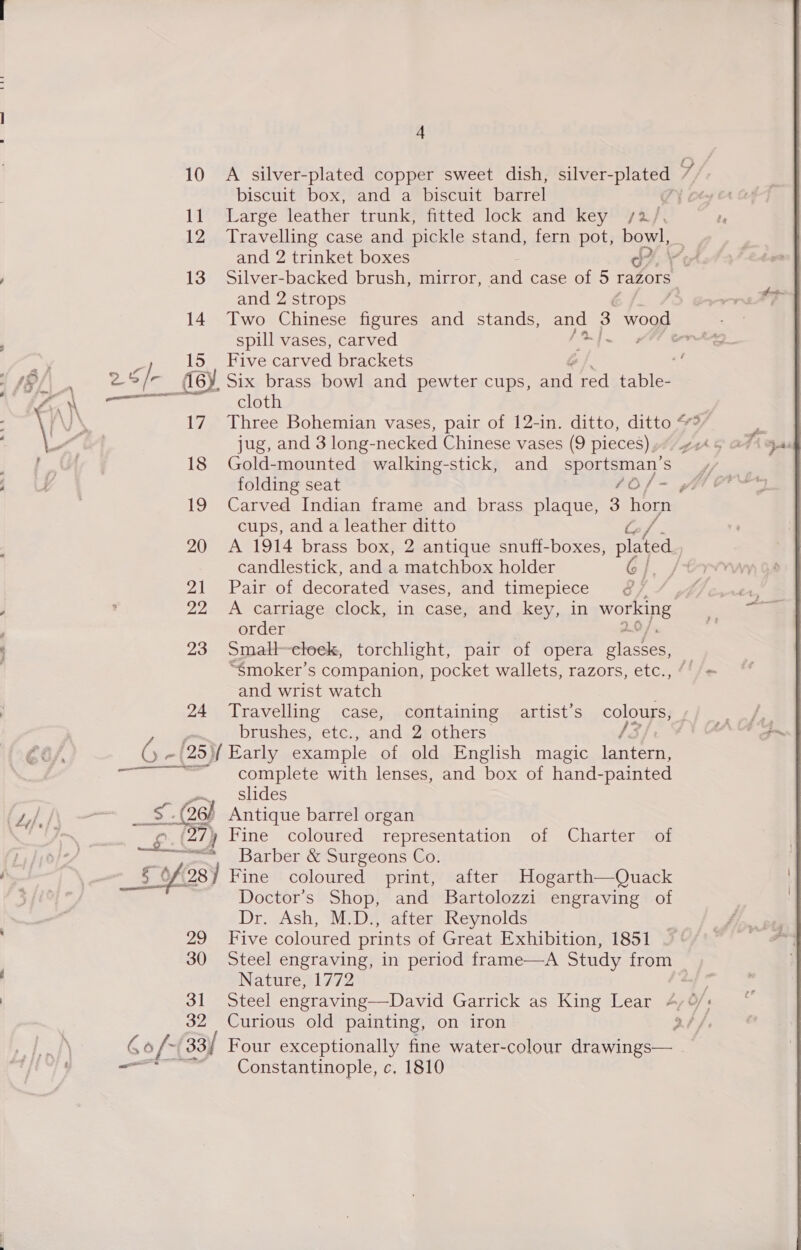 4
10 A silver-plated copper sweet dish, silver-plated
biscuit box, and a biscuit barrel
11 Large leather trunk, fitted lock and key 12/.
12 Travelling case and pickle stand, fern pot, bowl,
and 2 trinket boxes
13 Silver-backed brush, mirror, and case of 5 razors
and 2 strops
14 Two Chinese figures and stands, and 3 wood
spill vases, carved
15 Five carved brackets
25/- (16) Six brass bowl and pewter cups, and red table-
cloth
17 Three Bohemian vases, pair of 12-in. ditto, ditto
jug, and 3 long-necked Chinese vases (9 pieces)
18 Gold-mounted walking-stick, and sportsman's
folding seat 10/-
19 Carved Indian frame and brass plaque, 3 horn
cups, and a leather ditto
20 A 1914 brass box, 2 antique snuff-boxes, plated
candlestick, and a matchbox holder 6/.
21 Pair of decorated vases, and timepiece
22 A carriage clock, in case, and key, in working
order 20/.
23 Small clock, torchlight, pair of opera glasses,
smoker's companion, pocket wallets, razors, etc.,
and wrist watch
24 Travelling case, containing artist's colours,
brushes, etc., and 2 others
(25) Early example of old English magic lantern,
complete with lenses, and box of hand-painted
slides
(26) Antique barrel organ
(27) Fine coloured representation of Charter of
Barber & Surgeons Co.
(28) Fine coloured print, after Hogarth—Quack
Doctor's Shop, and Bartolozzi engraving of
Dr. Ash, M.D., after Reynolds
29 Five coloured prints of Great Exhibition, 1851
30 Steel engraving, in period frame—A Study from
Nature, 1772
31 Steel engraving—David Garrick as King Lear
32 Curious old painting, on iron
60/- (33) Four exceptionally fine water-colour drawings—
Constantinople, c. 1810